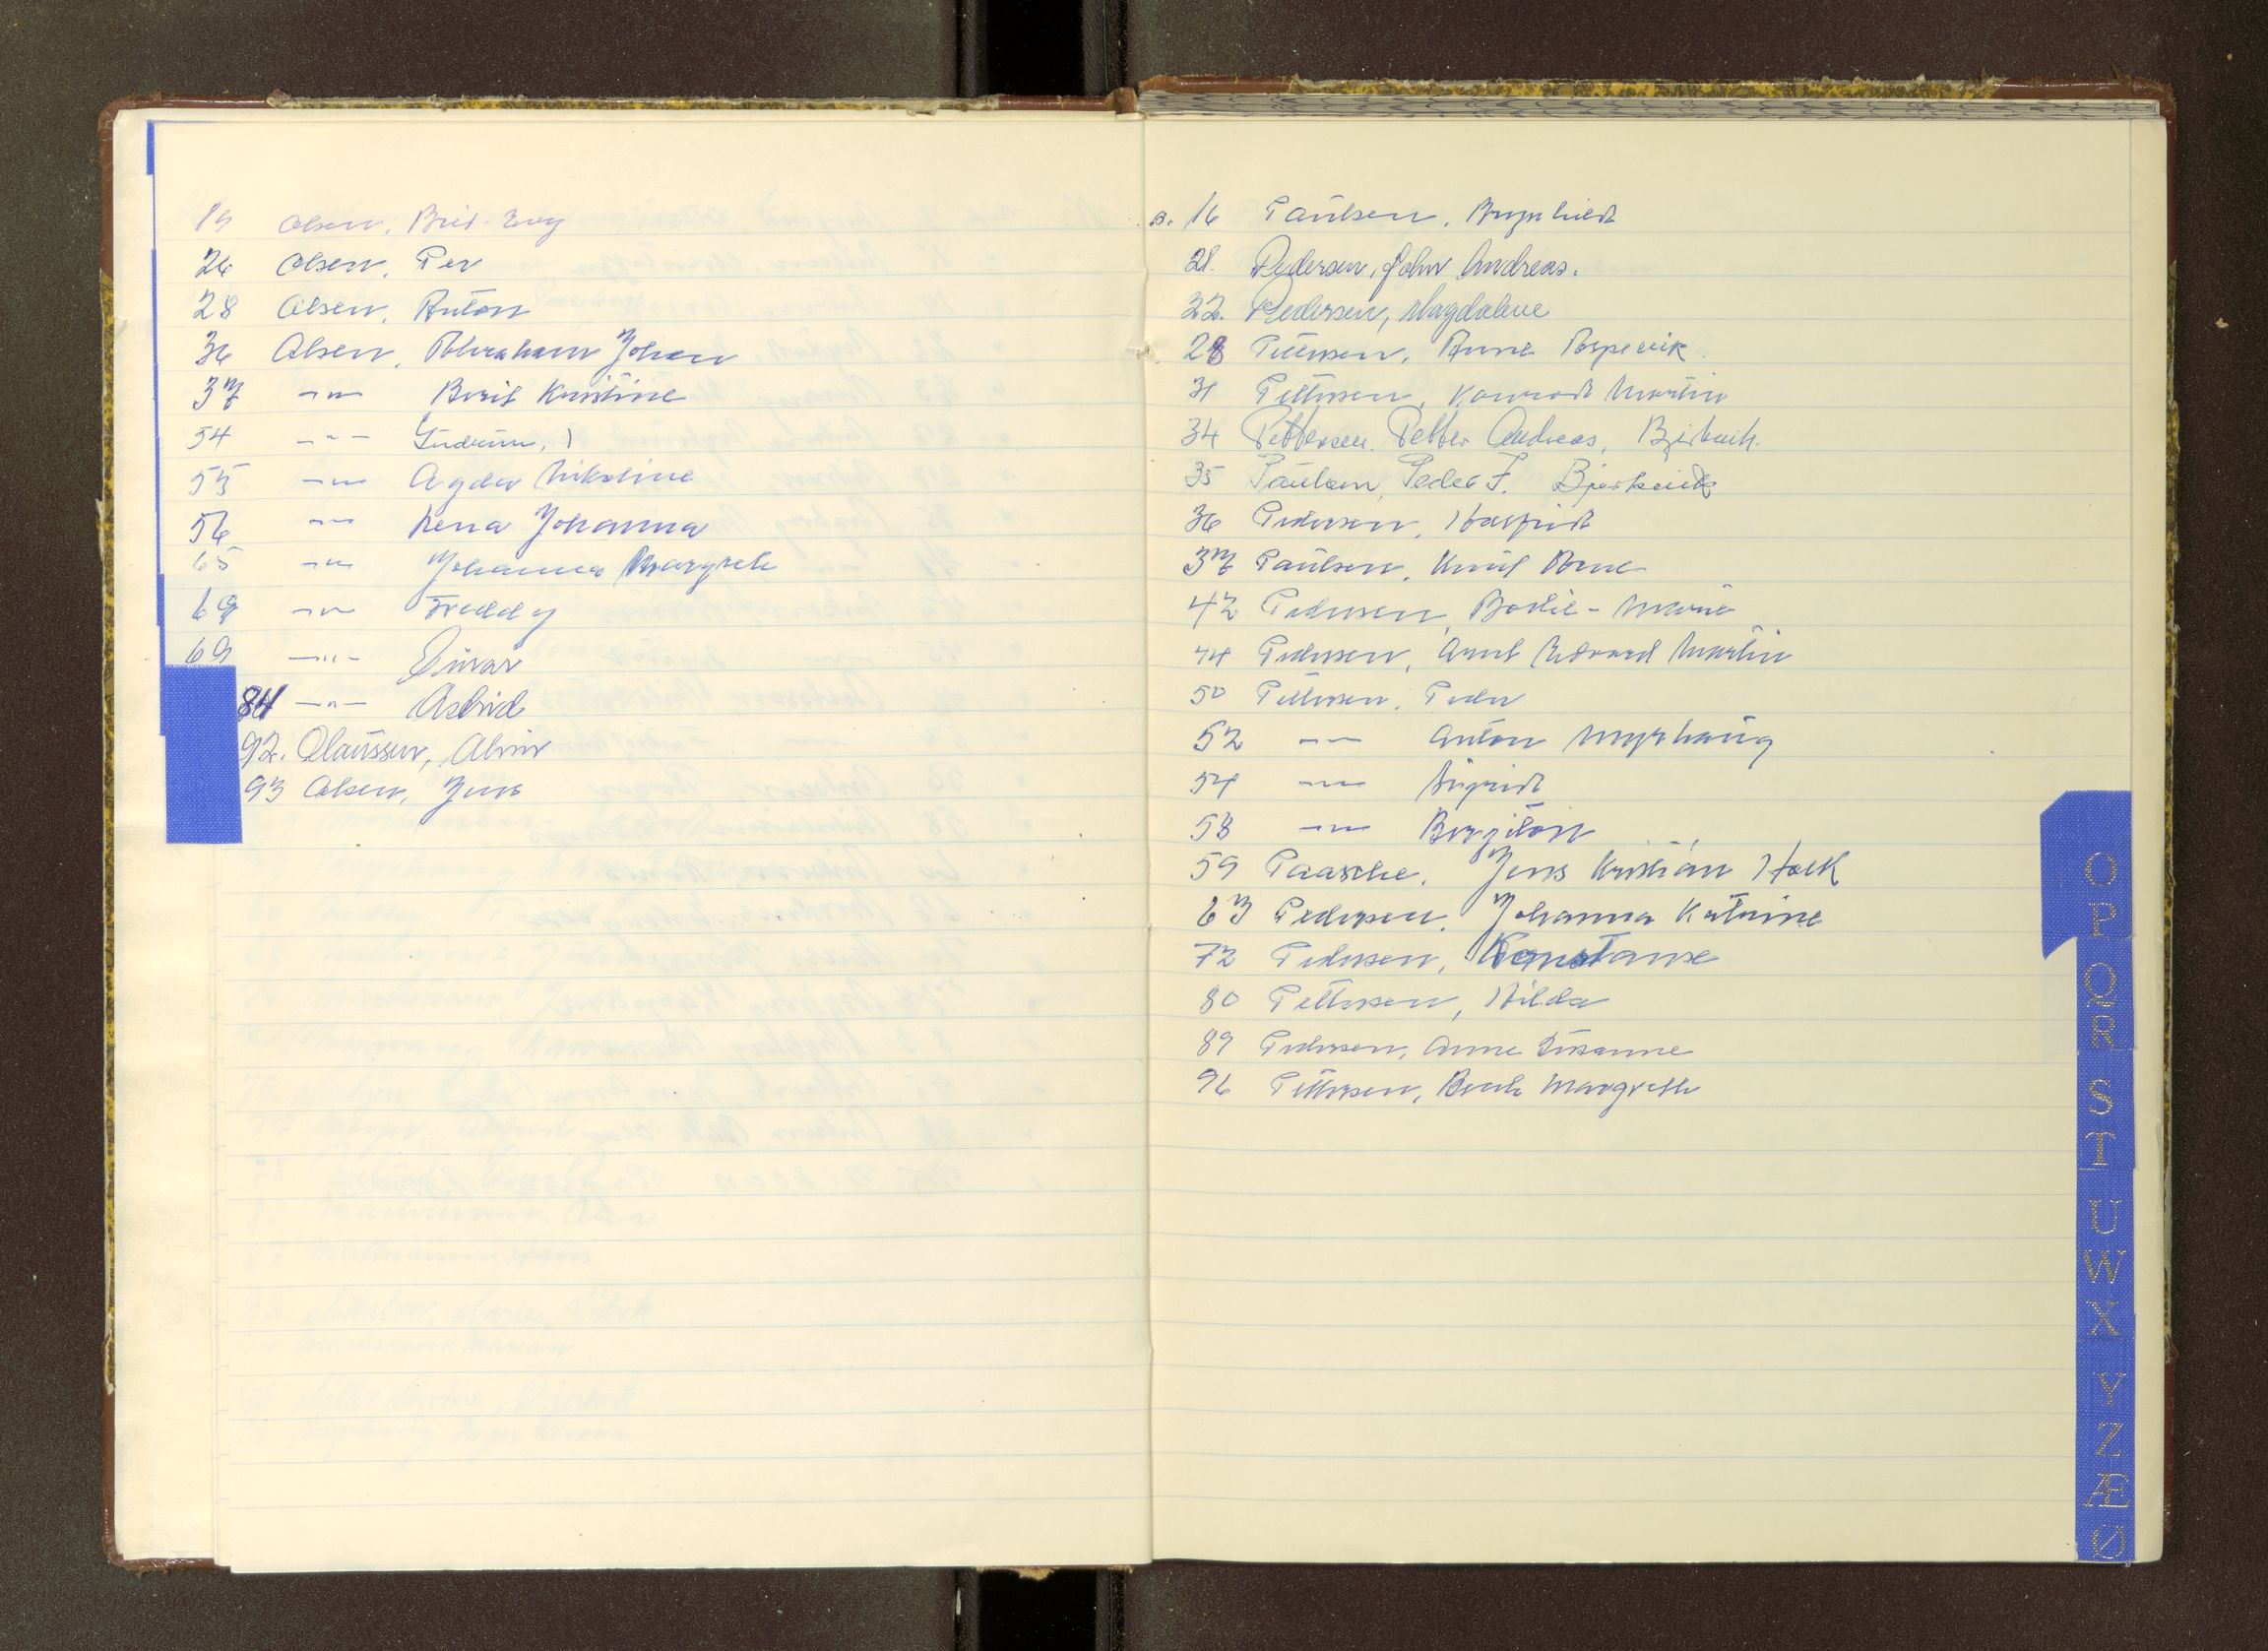 19 Olsen, Brit-Evy
26 Olsen, Per
28 Olsen, Anton
36 Olsen, Abraham Johan
37 -"- Berit Kristine
54 -"- Gudrun,
55 -"- Agder Nikoline
56 -"- Lena Johanna
65 -"- Johanna Margreth
69 -"- Freddy
69 -"- Einar
84 -"- Astrid
92. Olaussen, Alvin
93 Olsen, Jens
s. 16 Paulsen, Brynhild
21. Pedersen, John Andreas.
22. Pedersen, Magdalene
28 Pettersen, Anne
31 Pettersen, Konrad Martin
34 Pettersen, Petter Andreas, Bjerkvik.
35 Paulsen, Peder F. Bjerkvik
36 Pedersen, Hasfrid
37 Paulsen, Knut Arne
42 Pedersen, Bodil-Marie
44 Pedersen, Arnt Edvard Martin
50 Pettersen, Peder
52 -"- Anton Myrhaug
54 -"- Sigrid
58 -"- Bergiton
59 Paasche, Jens Kristian Holk
63 Pedersen, Johanna Katrine
72 Pedersen, Konstanse
80 Pettersen, Hilda
89 Pedersen, Anne Susanne
96 Pettersen, Berth Margreth
O
P
Q
R
S
T
U
W
X
Y
Z
Æ
Ø